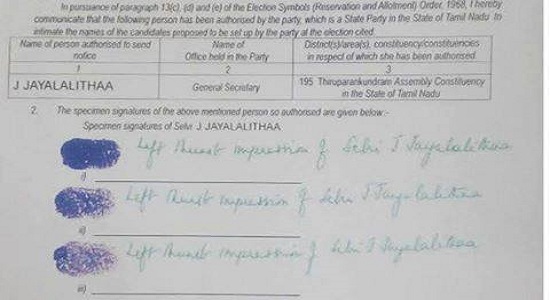 In pursuance of paragraph 13(c), (d) and (e) of the Election Symbols (Reservation and Allotment) Order, 1968, I hereby
communicate that the following person has been authorised by the party, which is a State Party in the State of Tamil Nadu to
intimate the names of the candidates proposed to be set up by the party at the election cited.
Name of person authorised to send notice
Name of Office held in the Party
District(s)/area(s), constituency/constituencies in respect of which she has been authorised
1 2 3
J JAYALALITHAA
General Secretary
195 Thiruparankundram Assembly Constituency in the State of Tamil Nadu
2. The specimen signatures of the above mentioned person so authorised are given below:-
Specimen signatures of Selvi J JAYALALITHAA
Left Thumb impression of Selvi J Jayalalithaa
i)
Left Thumb impression of Selvi J Jayalalithaa
ii)
Left Thumb impression of Selvi J Jayalalithaa
iii)